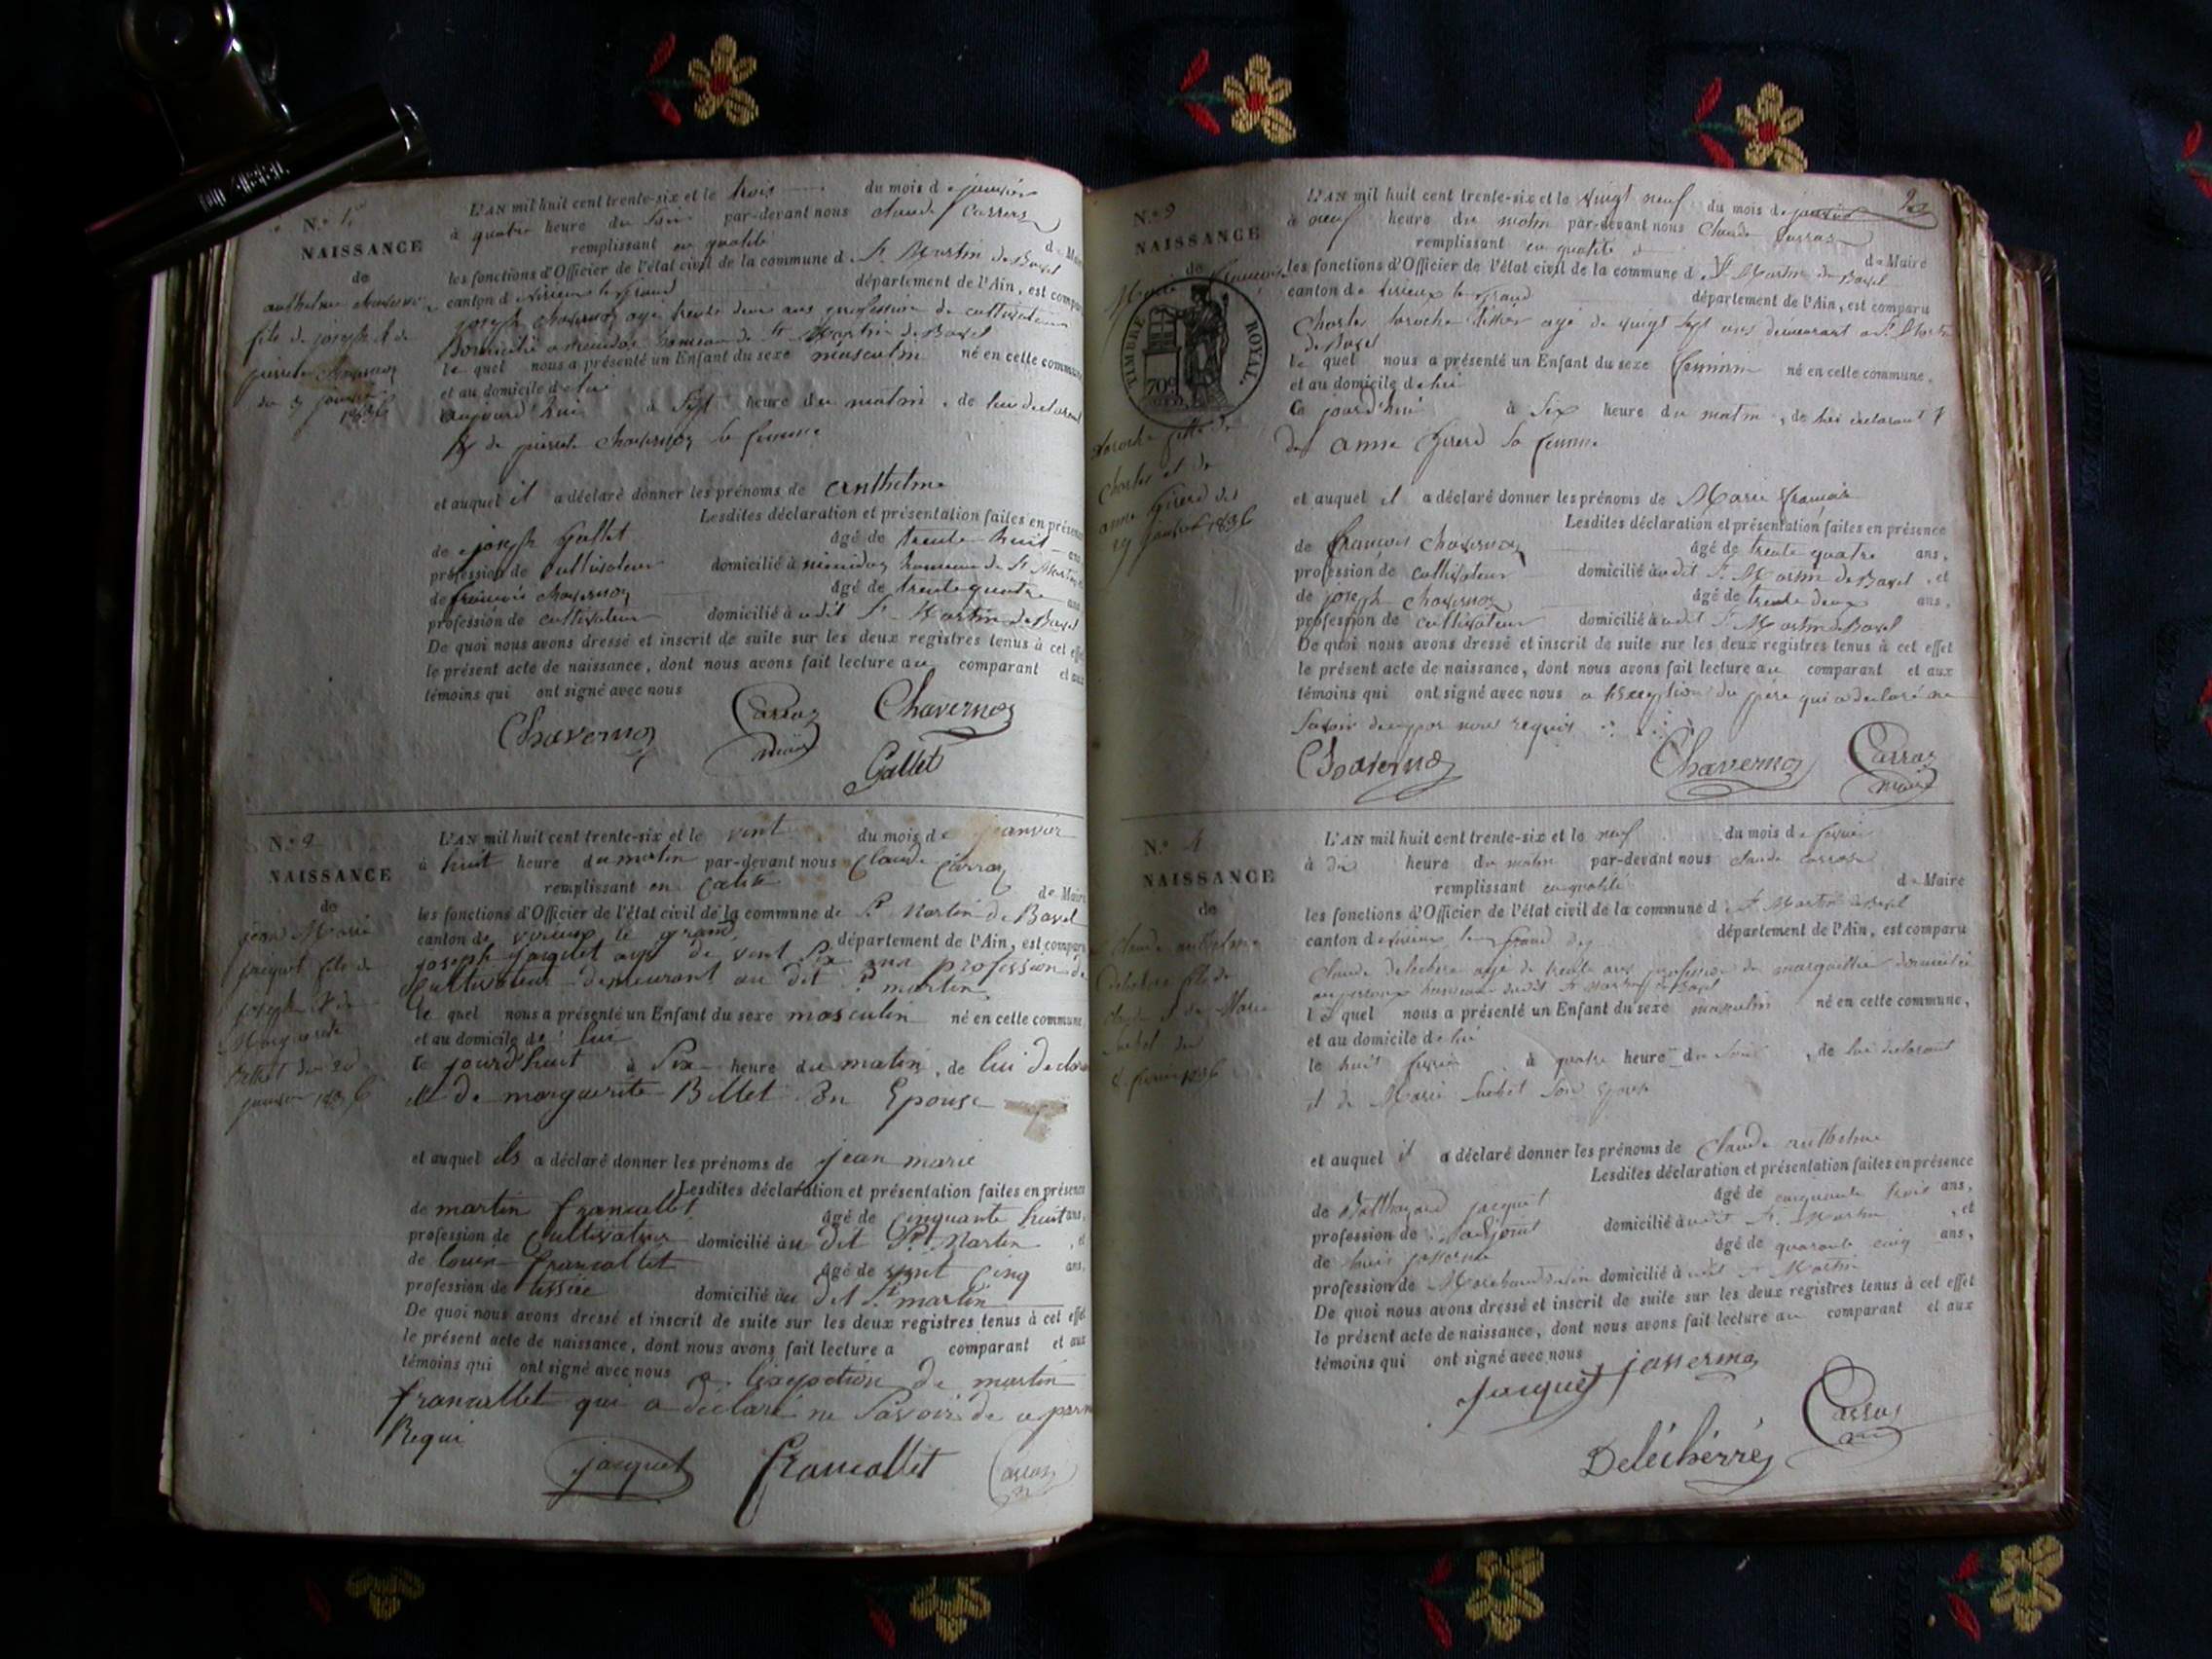 N.º 1.
NAISSANCE
de
fils de joseph & de
L'AN mil huit cent trente-six et le trois du mois de janvier
à quatre heure du soir par-devant nous claude Carraz
remplissant en qualité de Maire
les fonctions d'Officier de l'état civil de la commune de St Martin de Bavel
canton de virieux le grand département de l'Ain, est comparu
joseph chavernoz agé trente deux ans profession de cultivateur
hameau de St Martin de Bavel
le quel nous a présenté un Enfant du sexe masculin né en cette commune
et au domicile de lui
aujourd'hui à Sept heure du matin, de lui declarant
& de pierrete chavernoz sa femme
et auquel il a déclaré donner les prénoms de anthelme
Lesdites déclaration et présentation faites en présence
de joseph Gallet âgé de trente huit ans
profession de cultivateur domicilié à hameau de St Martin
de francois chavernoz âgé de trente quatre ans
profession de cultivateur domicilié à udit St Martin de Bavel
De quoi nous avons dressé et inscrit de suite sur les deux registres tenus à cet effet
le présent acte de naissance, dont nous avons fait lecture au comparant et aux
témoins qui ont signé avec nous
Chavernoz Carraz Chavernoz
maire
Gallet
N.º 2
NAISSANCE
de
jean Marie
jacquet fils de
joseph & de
Marguerite
Billet du 20
janvier 1836
L'AN mil huit cent trente-six et le vint du mois de janvier
à huit heure du matin par-devant nous Claude Carraz
remplissant en calité de Maire
les fonctions d'Officier de l'état civil de la commune de St Martin de Bavel
canton de virieux le grand département de l'Ain, est comparu
joseph jacquet agé de vint Six ans profession de
Cultivateur demeurant au dit St martin
le quel nous a présenté un Enfant du sexe masculin né en cette commune
et au domicile de lui
le jourd'huit à Six heure du matin, de lui declarant
et de marguerite Billet Son Epouse
et auquel ils a déclaré donner les prénoms de jean marie
Lesdites déclaration et présentation faites en présence
de martin francallet âgé de Cinquante huit ans,
profession de Cultivateur domicilié au dit St Martin, et
de louis francallet âgé de vint Cinq ans,
profession de tissier domicilié au dit St martin
De quoi nous avons dressé et inscrit de suite sur les deux registres tenus à cet effet
le présent acte de naissance, dont nous avons fait lecture a comparant et aux
témoins qui ont signé avec nous a lixception de martin
francallet qui a déclaré ne Savoir de
Requi
jacquet francallet Carraz
2
N.º 3
NAISSANCE
de
Marie françoise
TIMBRE ROYAL.
70c
Laroche fille de
Charles et de
anne Girerd du
29 janvier 1836
L'AN mil huit cent trente-six et le vingt neuf du mois de janvier
à neuf heure du matin par-devant nous Claude Carraz
remplissant en qualité de Maire
les fonctions d'Officier de l'état civil de la commune de St Martin de Bavel
canton de virieux le grand département de l'Ain, est comparu
Charles laroche tissier agé de vingt sept ans demeurant a St Martin
de Bavel
le quel nous a présenté un Enfant du sexe feminin né en cette commune,
et au domicile de lui
Ce jourd'hui à Six heure du matin, de lui declarant &
de anne Girerd sa femme
et auquel il a déclaré donner les prénoms de Marie françoise
Lesdites déclaration et présentation faites en présence
de francois chavernoz âgé de trente quatre ans,
profession de cultivateur domicilié à udit St Martin de Bavel, et
de joseph chavernoz âgé de trente deux ans,
profession de cultivateur domicilié à udit St Martin de Bavel
De quoi nous avons dressé et inscrit de suite sur les deux registres tenus à cet effet
le présent acte de naissance, dont nous avons fait lecture au comparant et aux
témoins qui ont signé avec nous a lexception du pere qui a declaré ne
Savoir de nous requis
Chavernoz Chavernoz Carraz
maire
N.º 4
NAISSANCE
de
claude anthelme
fils de
claude & de Marie
L'AN mil huit cent trente-six et le neuf du mois de fevrier
à dix heure du matin par-devant nous claude carraz
remplissant en qualité de Maire
les fonctions d'Officier de l'état civil de la commune de St Martin de Bavel
canton de virieux le grand département de l'Ain, est comparu
agé de trente ans profession de domicilié
hameau dudit St Martin de Bavel
le quel nous a présenté un Enfant du sexe masculin né en cette commune,
et au domicile de lui
le huit fevrier à quatre heure du soir, de lui declarant
et de Marie son epouse
et auquel il a déclaré donner les prénoms de Claude anthelme
Lesdites déclaration et présentation faites en présence
de jacquet âgé de cinquante trois ans,
profession de domicilié à udit St Martin, et
de âgé de quarante cinq ans,
profession de domicilié à udit St Martin
De quoi nous avons dressé et inscrit de suite sur les deux registres tenus à cet effet
le présent acte de naissance, dont nous avons fait lecture au comparant et aux
témoins qui ont signé avec nous
jacquet
Carraz
Deléchérréz